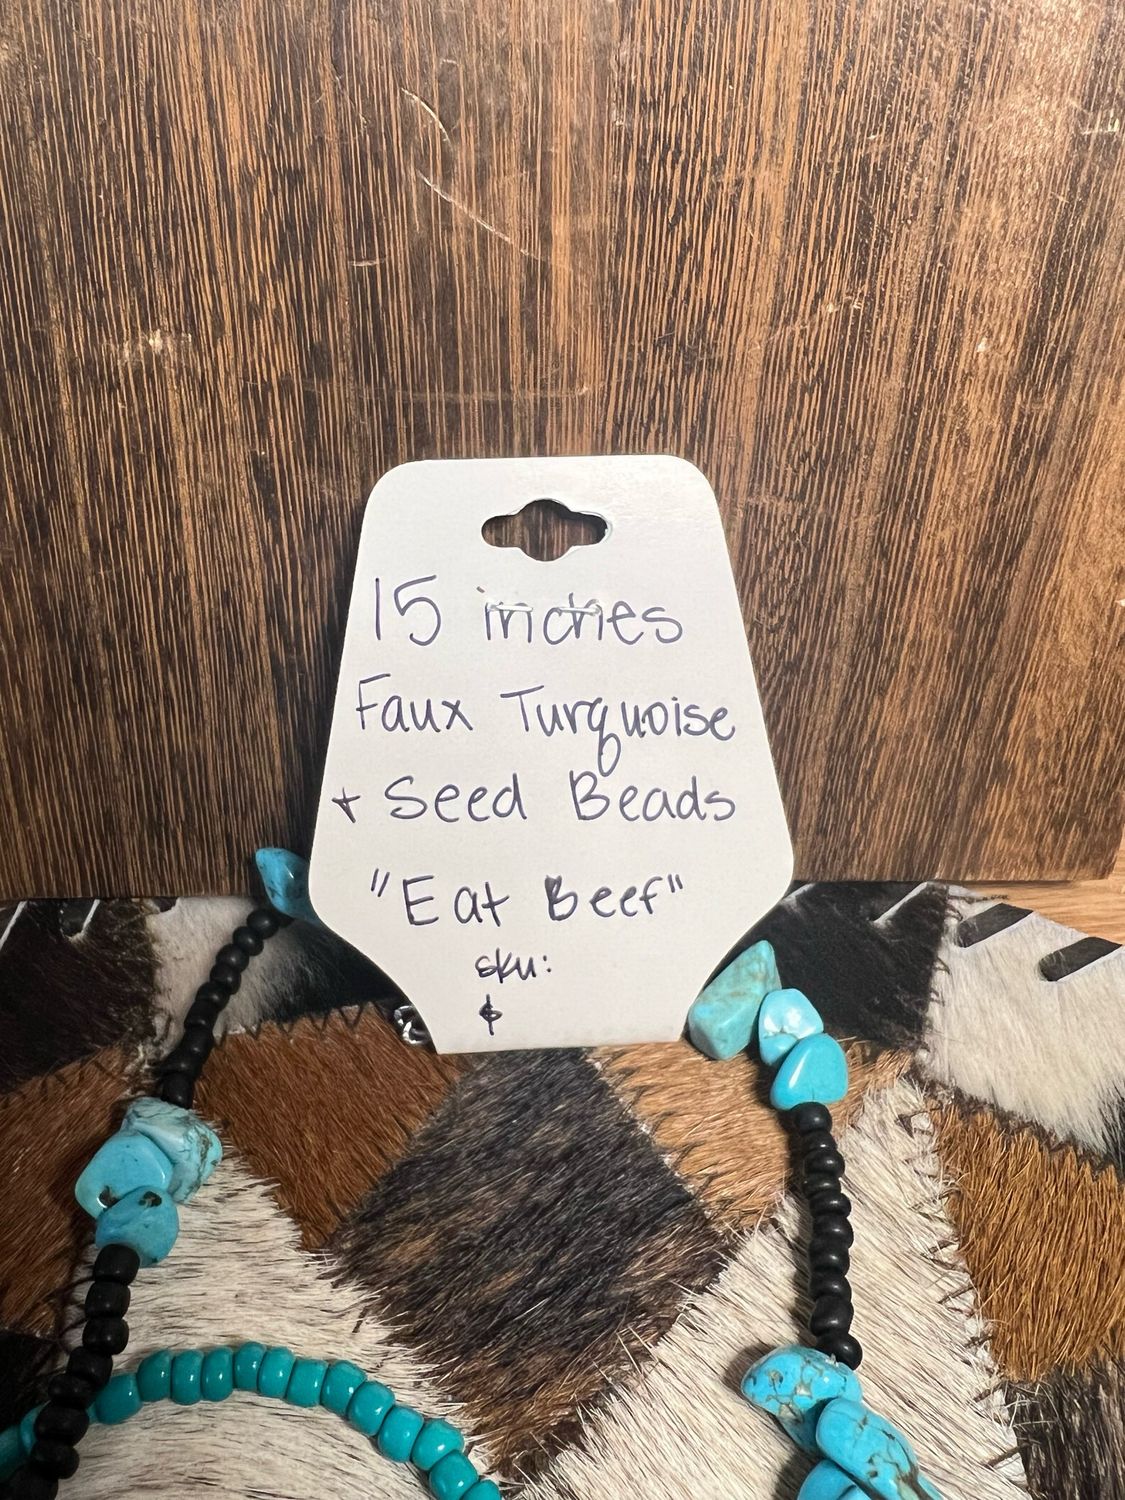 15 inches
Faux Turquoise
+ Seed Beads
"Eat Beef"
sku:
$